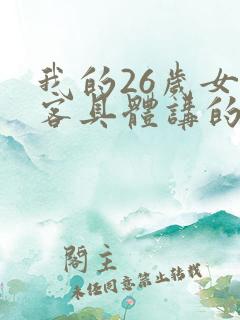 我的26歲女
客具體講的
閣主
未經同意禁止轉載